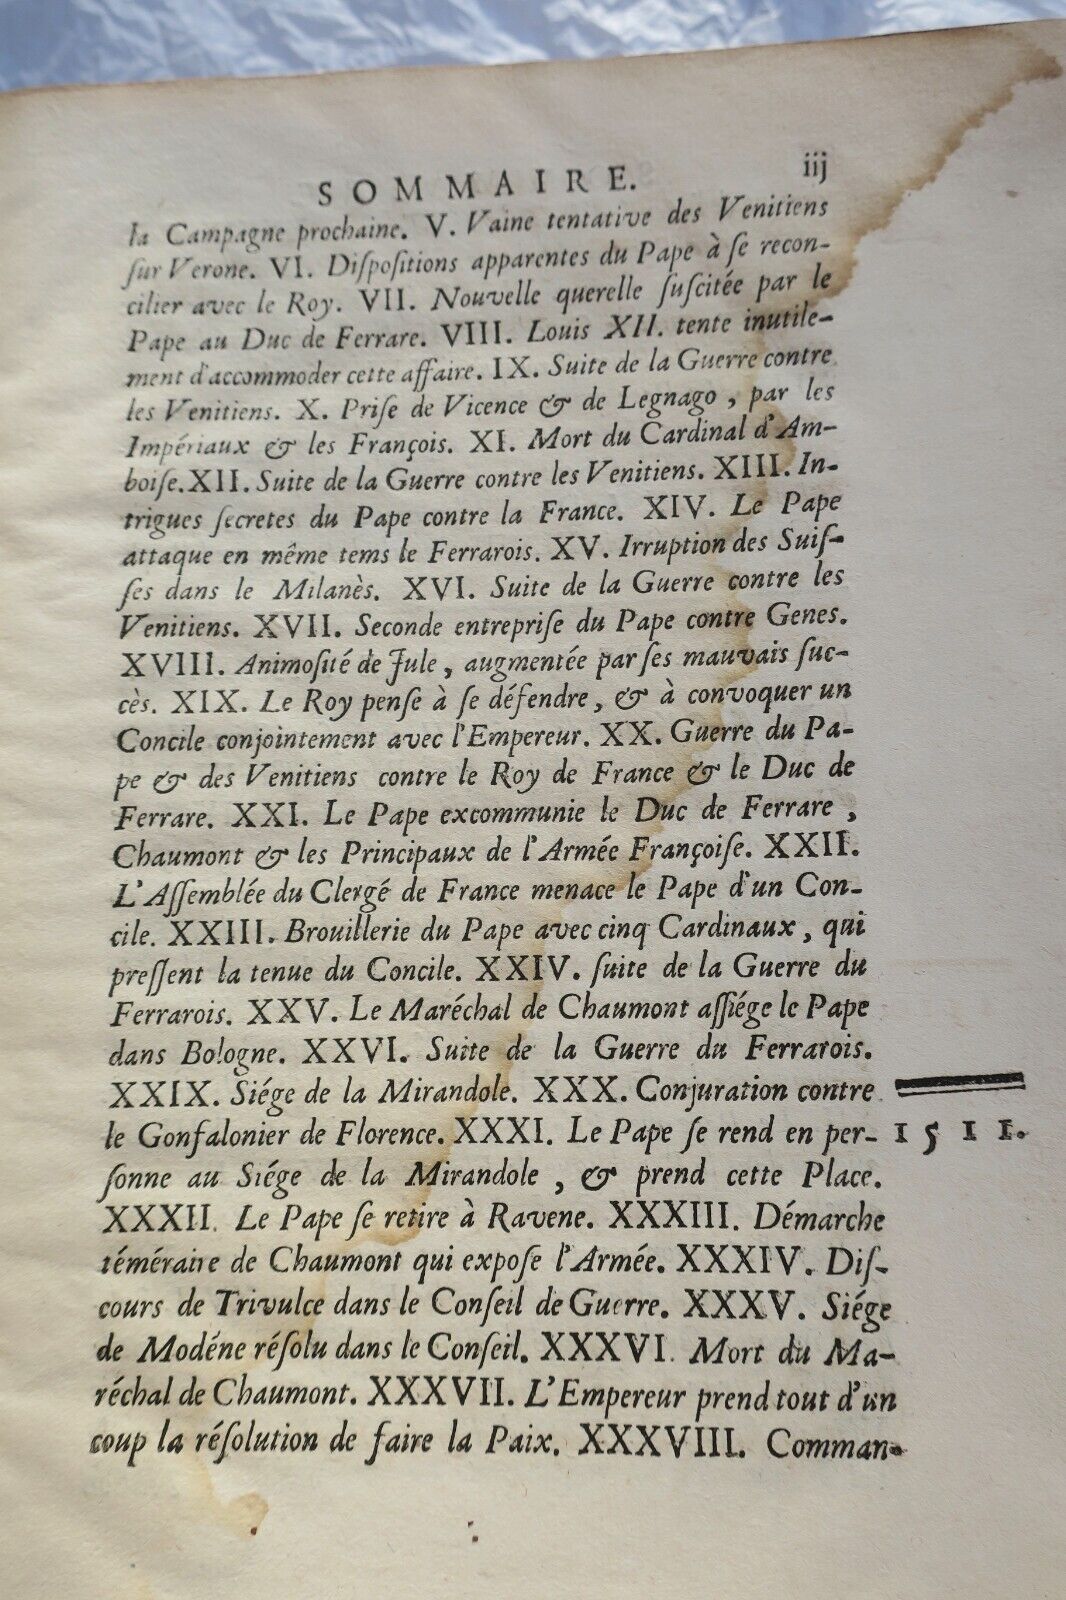 SOMMAIRE. iij
la Campagne prochaine. V. Vaine tentative des Venitiens
ſur Verone. VI. Diſpoſitions apparentes du Pape à ſe recon-
cilier avec le Roy. VII. Nouvelle querelle ſuſcitée par le
Pape au Duc de Ferrare. VIII. Louis XII. tente inutile-
ment d'accommoder cette affaire. IX. Suite de la Guerre contre
les Venitiens. X. Priſe de Vicence & de Legnago, par les
Impériaux & les François. XI. Mort du Cardinal d'Am-
boiſe. XII. Suite de la Guerre contre les Venitiens. XIII. In-
trigues ſecretes du Pape contre la France. XIV. Le Pape
attaque en même tems le Ferrarois. XV. Irruption des Suiſ-
ſes dans le Milanès. XVI. Suite de la Guerre contre les
Venitiens. XVII. Seconde entrepriſe du Pape contre Genes.
XVIII. Animoſité de Jule, augmentée par ſes mauvais ſuc-
cès. XIX. Le Roy penſe à ſe défendre, & à convoquer un
Concile conjointement avec l'Empereur. XX. Guerre du Pa-
pe & des Venitiens contre le Roy de France & le Duc de
Ferrare. XXI. Le Pape excommunie le Duc de Ferrare,
Chaumont & les Principaux de l'Armée Françoiſe. XXII.
L'Aſſemblée du Clergé de France menace le Pape d'un Con-
cile. XXIII. Brouillerie du Pape avec cinq Cardinaux, qui
preſſent la tenue du Concile. XXIV. ſuite de la Guerre du
Ferrarois. XXV. Le Maréchal de Chaumont aſſiége le Pape
dans Bologne. XXVI. Suite de la Guerre du Ferrarois.
XXIX. Siége de la Mirandole. XXX. Conjuration contre
le Gonfalonier de Florence. XXXI. Le Pape ſe rend en per- 1511.
ſonne au Siége de la Mirandole, & prend cette Place.
XXXII. Le Pape ſe retire à Ravene. XXXIII. Démarche
téméraire de Chaumont qui expoſe l'Armée. XXXIV. Diſ-
cours de Trivulce dans le Conſeil de Guerre. XXXV. Siége
de Modéne réſolu dans le Conſeil. XXXVI. Mort du Ma-
réchal de Chaumont. XXXVII. L'Empereur prend tout d'un
coup la réſolution de faire la Paix. XXXVIII. Comman-